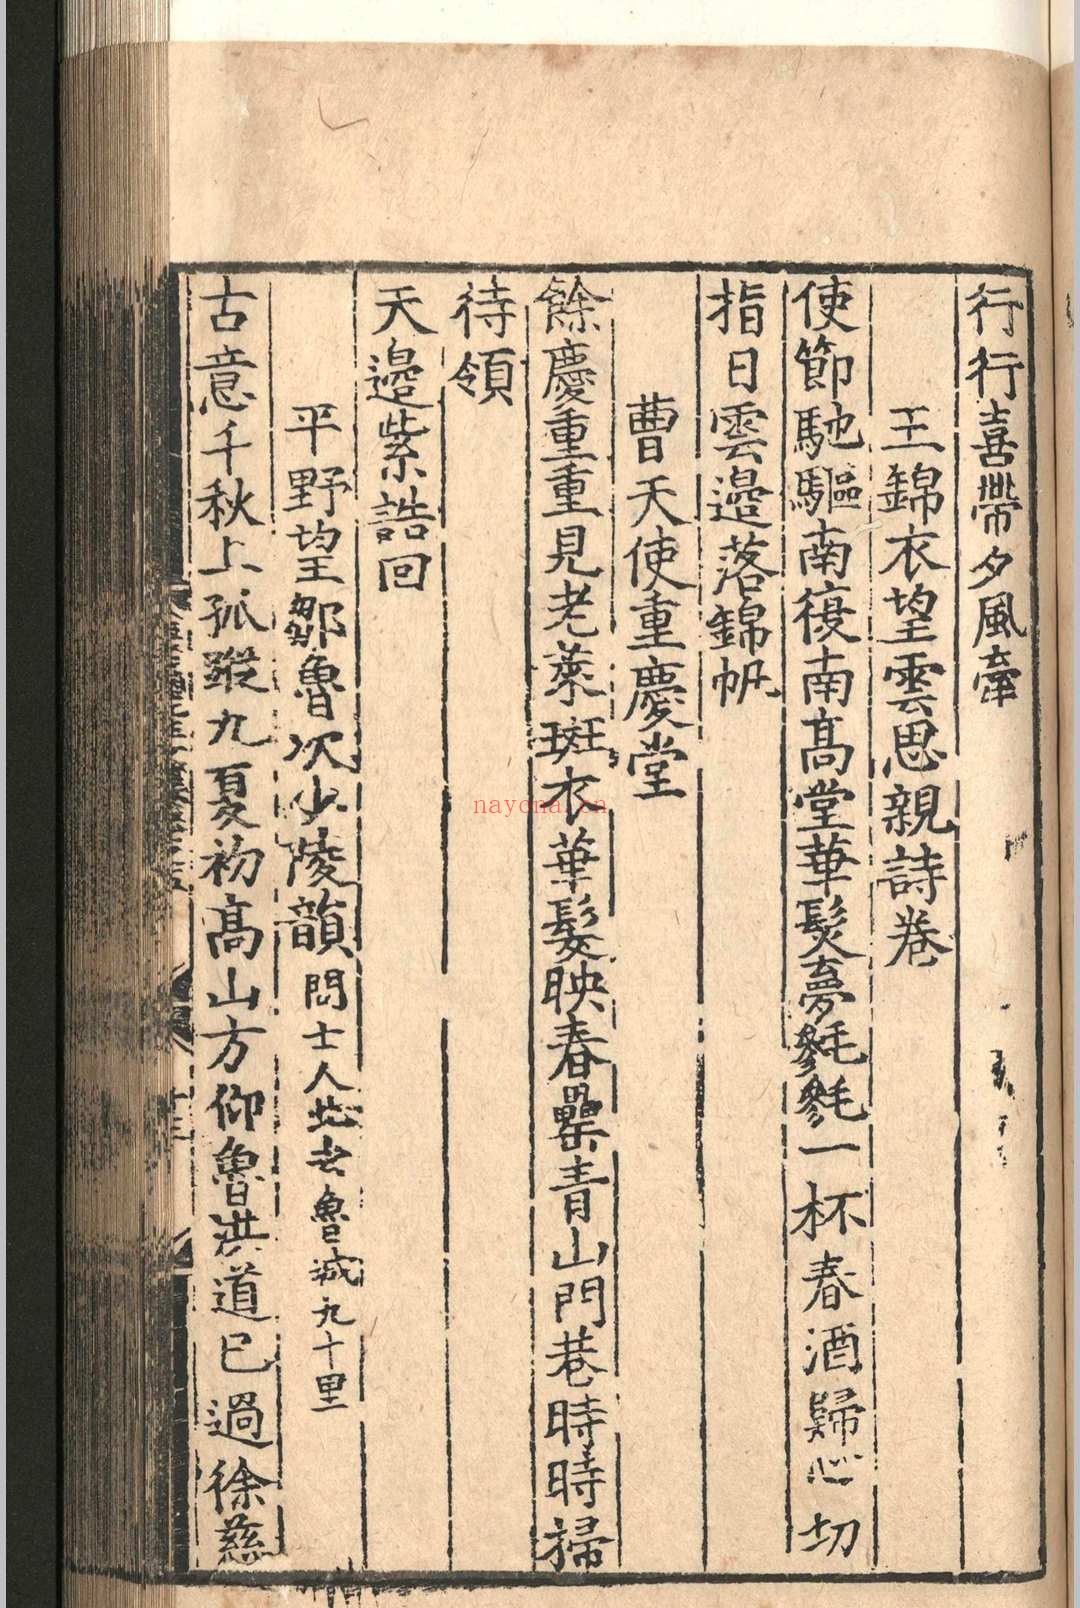 行行喜帶夕風牽
王錦衣望雲思親詩卷
使節馳驅南復南高堂華髮夢毿毿一杯春酒歸心切
指日雲邉落錦帆
曹天使重慶堂
餘慶重重見老萊斑衣華髮映春罍青山門巷時時掃
待領
天邉紫誥回
平野望鄒魯次少陵韻問士人此去魯城九十里
古意千秋上孤蹤九夏初高山方仰魯洪道已過徐慈
nayona.cn